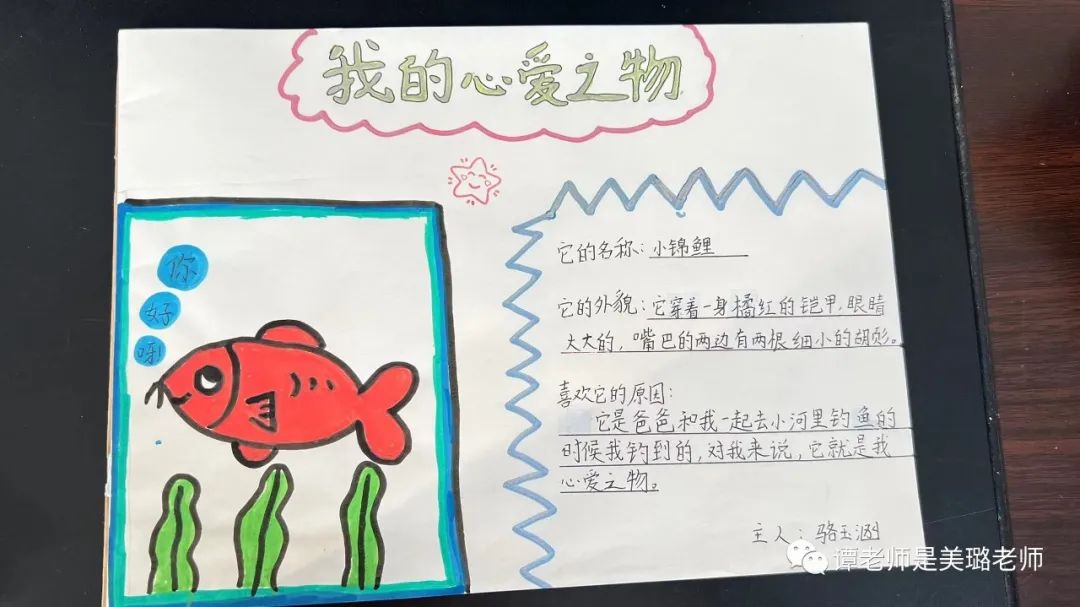 我的心爱之物
你
好
呀!
它的名称：小锦鲤
它的外貌：它穿着一身橘红的铠甲，眼睛
大大的，嘴巴的两边有两根细小的胡须。
喜欢它的原因：
它是爸爸和我一起去小河里钓鱼的
时候我钓到的，对我来说，它就是我
心爱之物。
主人：骆玉涵
谭老师是美璐老师